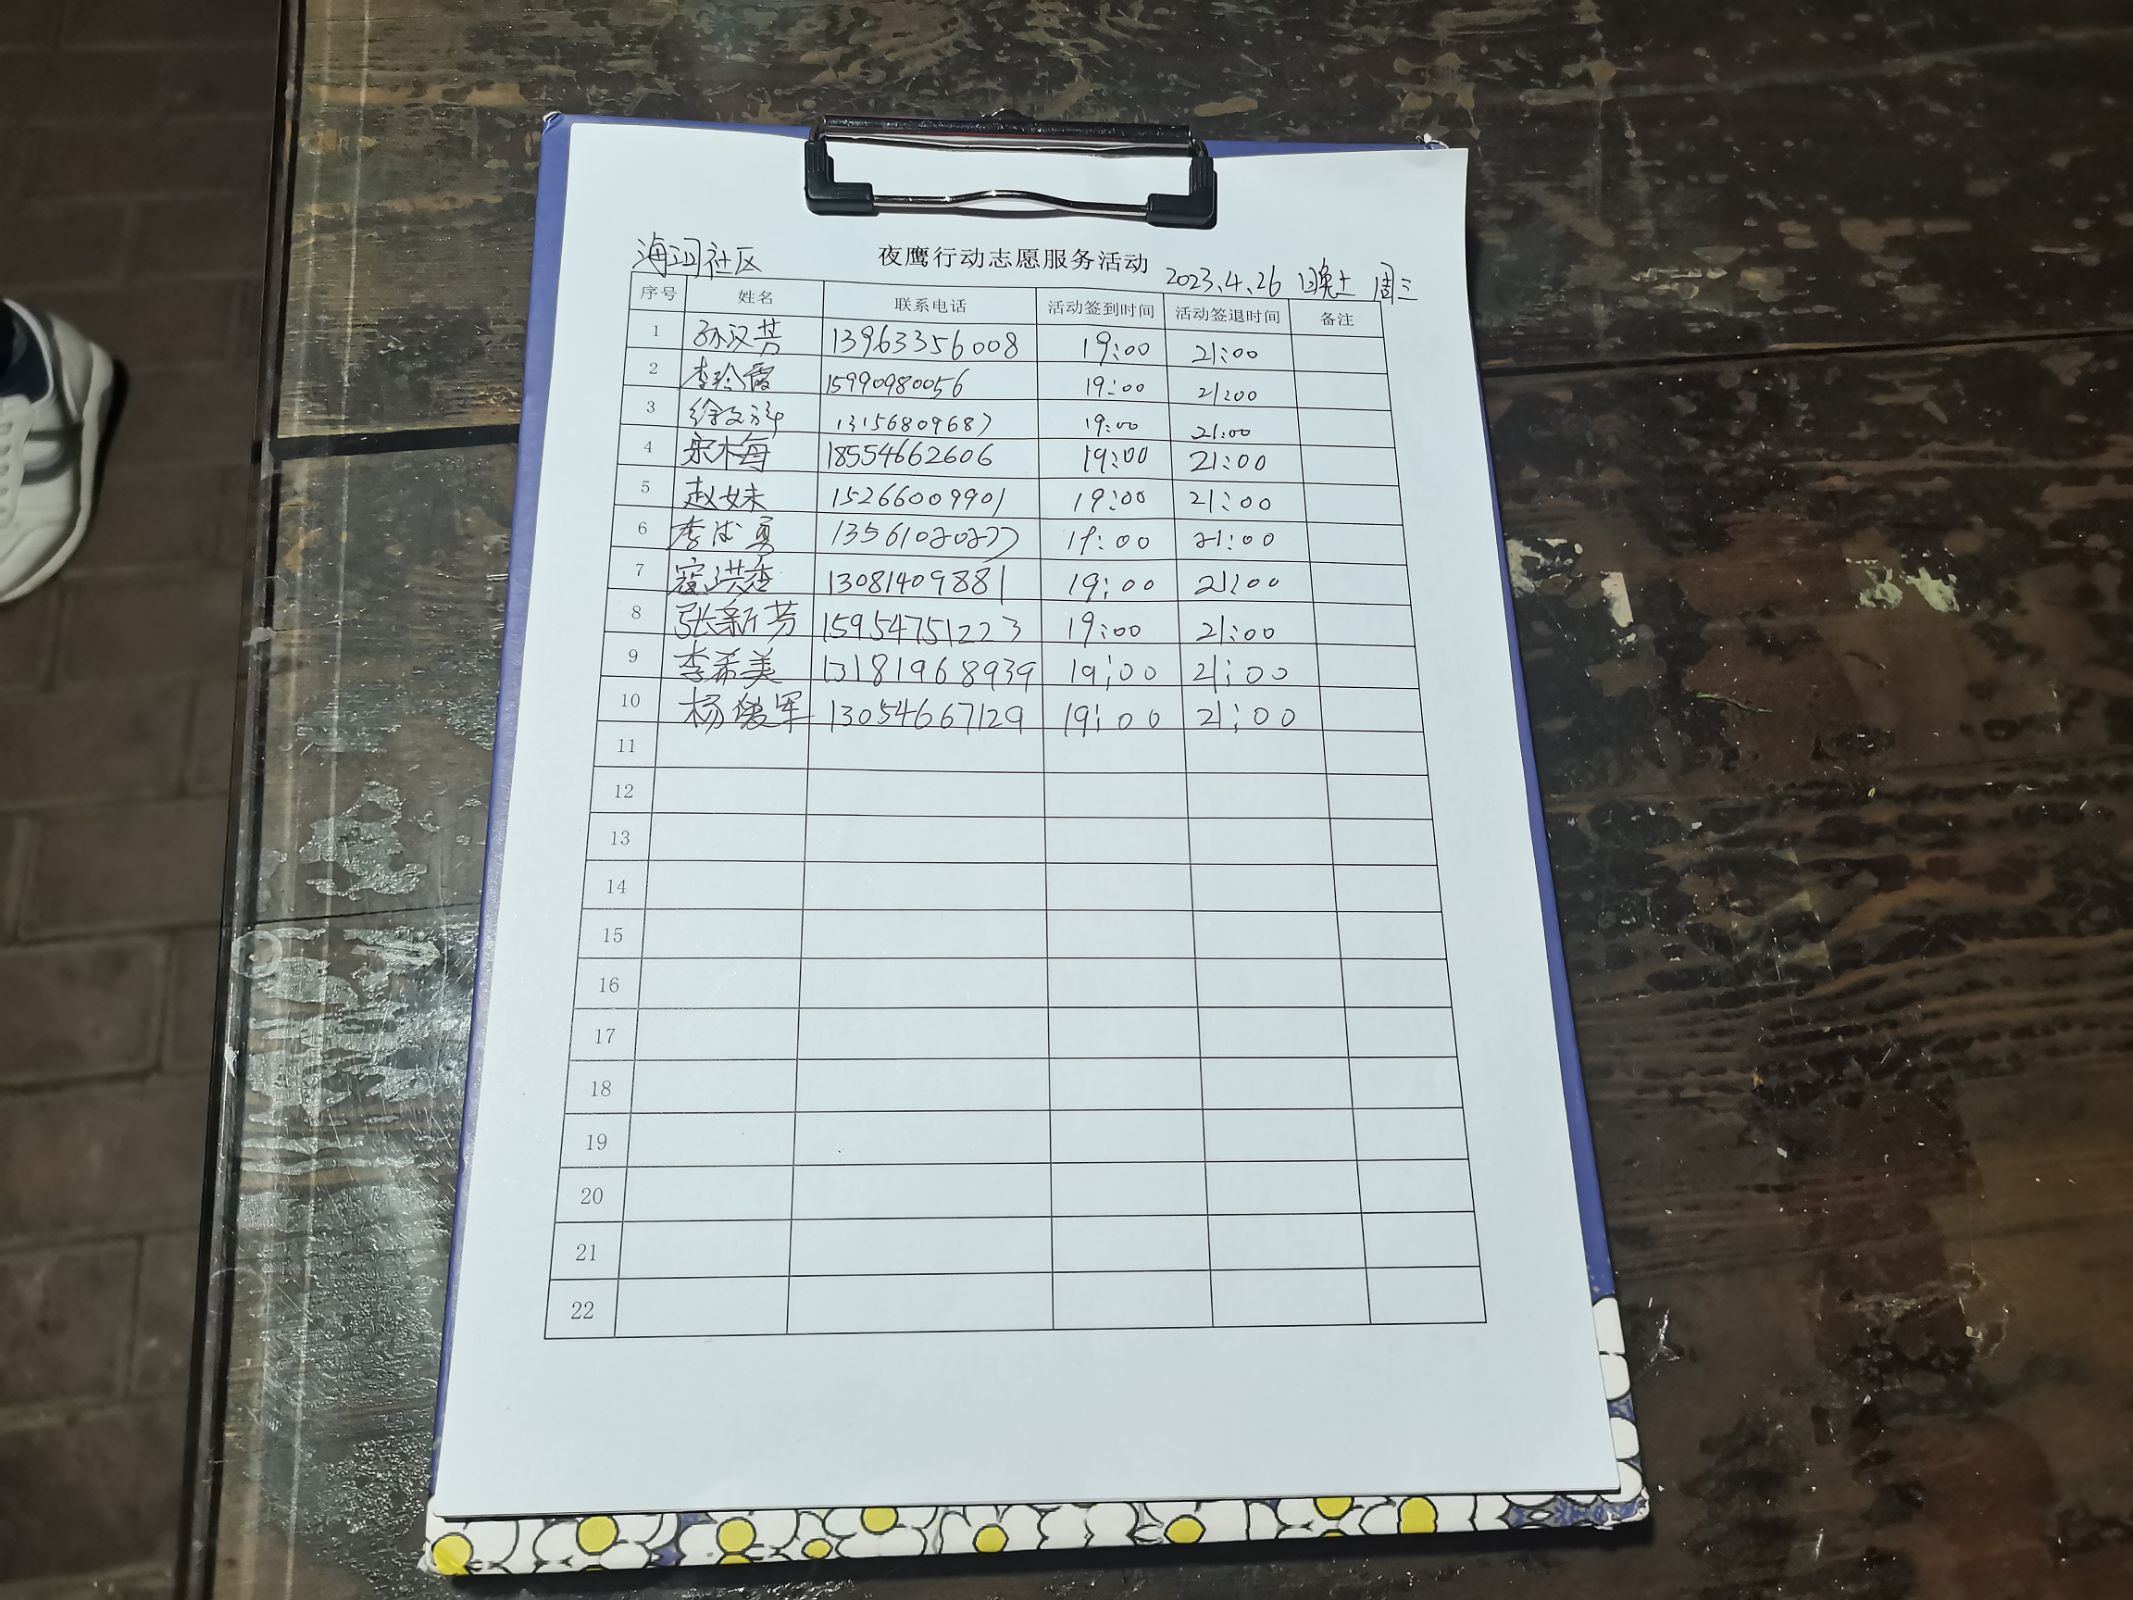 海河社区 夜鹰行动志愿服务活动 2023.4.26日晚上 周三
序号 姓名 联系电话 活动签到时间 活动签退时间 备注
1 孙汉芳 13963356008 19:00 21:00
2 李玲霞 15990980056 19:00 21:00
3 徐文 13156809687 19:00 21:00
4 宋木梅 18554662606 19:00 21:00
5 赵妹 15266009901 19:00 21:00
6 李成勇 19:00 21:00
7 寇洪香 13081409881 19:00 21:00
8 张新芳 15954751223 19:00 21:00
9 李希美 13181968939 19:00 21:00
10 杨俊军 13054667129 19:00 21:00
11
12
13
14
15
16
17
18
19
20
21
22